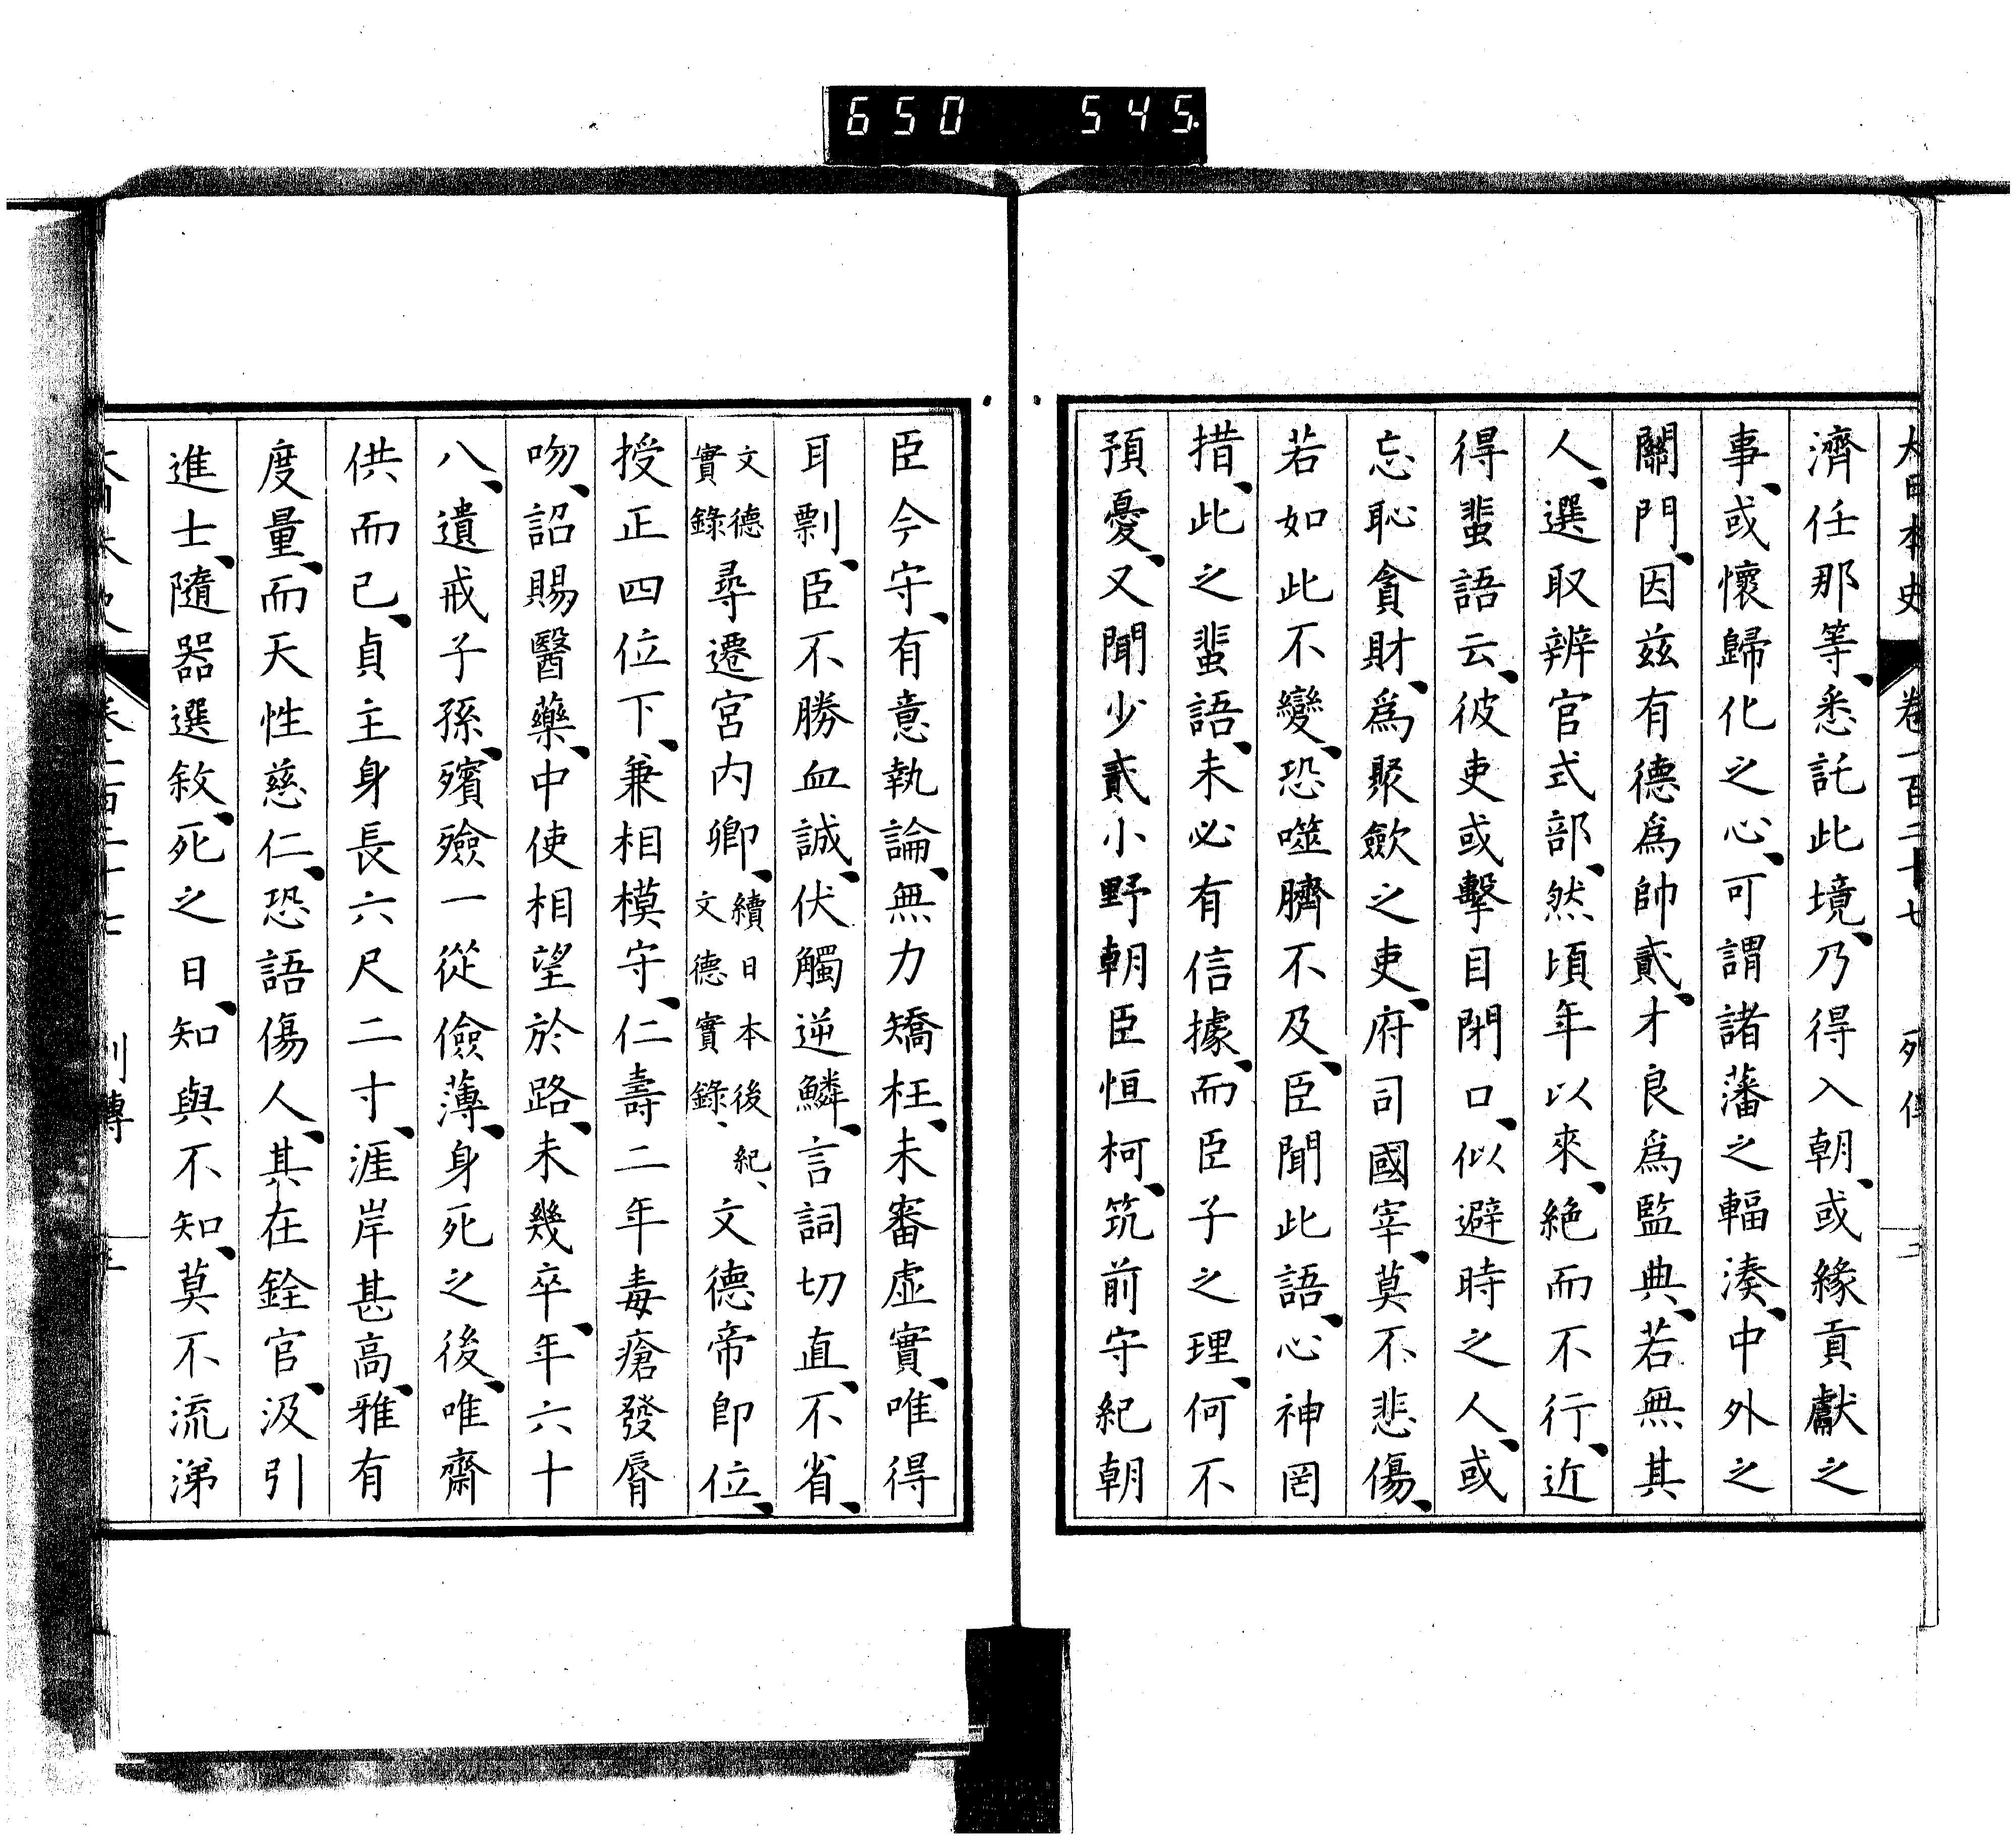 650 545.
大日本史 卷一百二十七 列傳 三
濟任那等、悉託此境、乃得入朝、或緣貢獻之
事、或懷歸化之心、可謂諸藩之輻湊、中外之
關門、因茲有德爲帥貳、才良爲監典、若無其
人、選取辨官式部、然頃年以來、絕而不行、近
得蜚語云、彼吏或擊目閉口、似避時之人、或
忘恥貪財、爲聚斂之吏、府司國宰、莫不悲傷、
若如此不變、恐噬臍不及、臣聞此語、心神罔
措、此之蜚語、未必有信據、而臣子之理、何不
預憂、又聞少貳小野朝臣恒柯、筑前守紀朝
臣今守、有意執論、無力矯枉、未審虛實、唯得
耳剽、臣不勝血誠、伏觸逆鱗、言詞切直、不省、
文德實錄尋遷宮內卿、續日本後紀、文德實錄、文德帝卽位、
授正四位下、兼相模守、仁壽二年毒瘡發脣
吻、詔賜醫藥、中使相望於路、未幾卒、年六十
八、遺戒子孫、殯殮一從儉薄、身死之後、唯齋
供而已、貞主身長六尺二寸、涯岸甚高、雅有
度量、而天性慈仁、恐語傷人、其在銓官、汲引
進士、隨器選敘、死之日、知與不知、莫不流涕